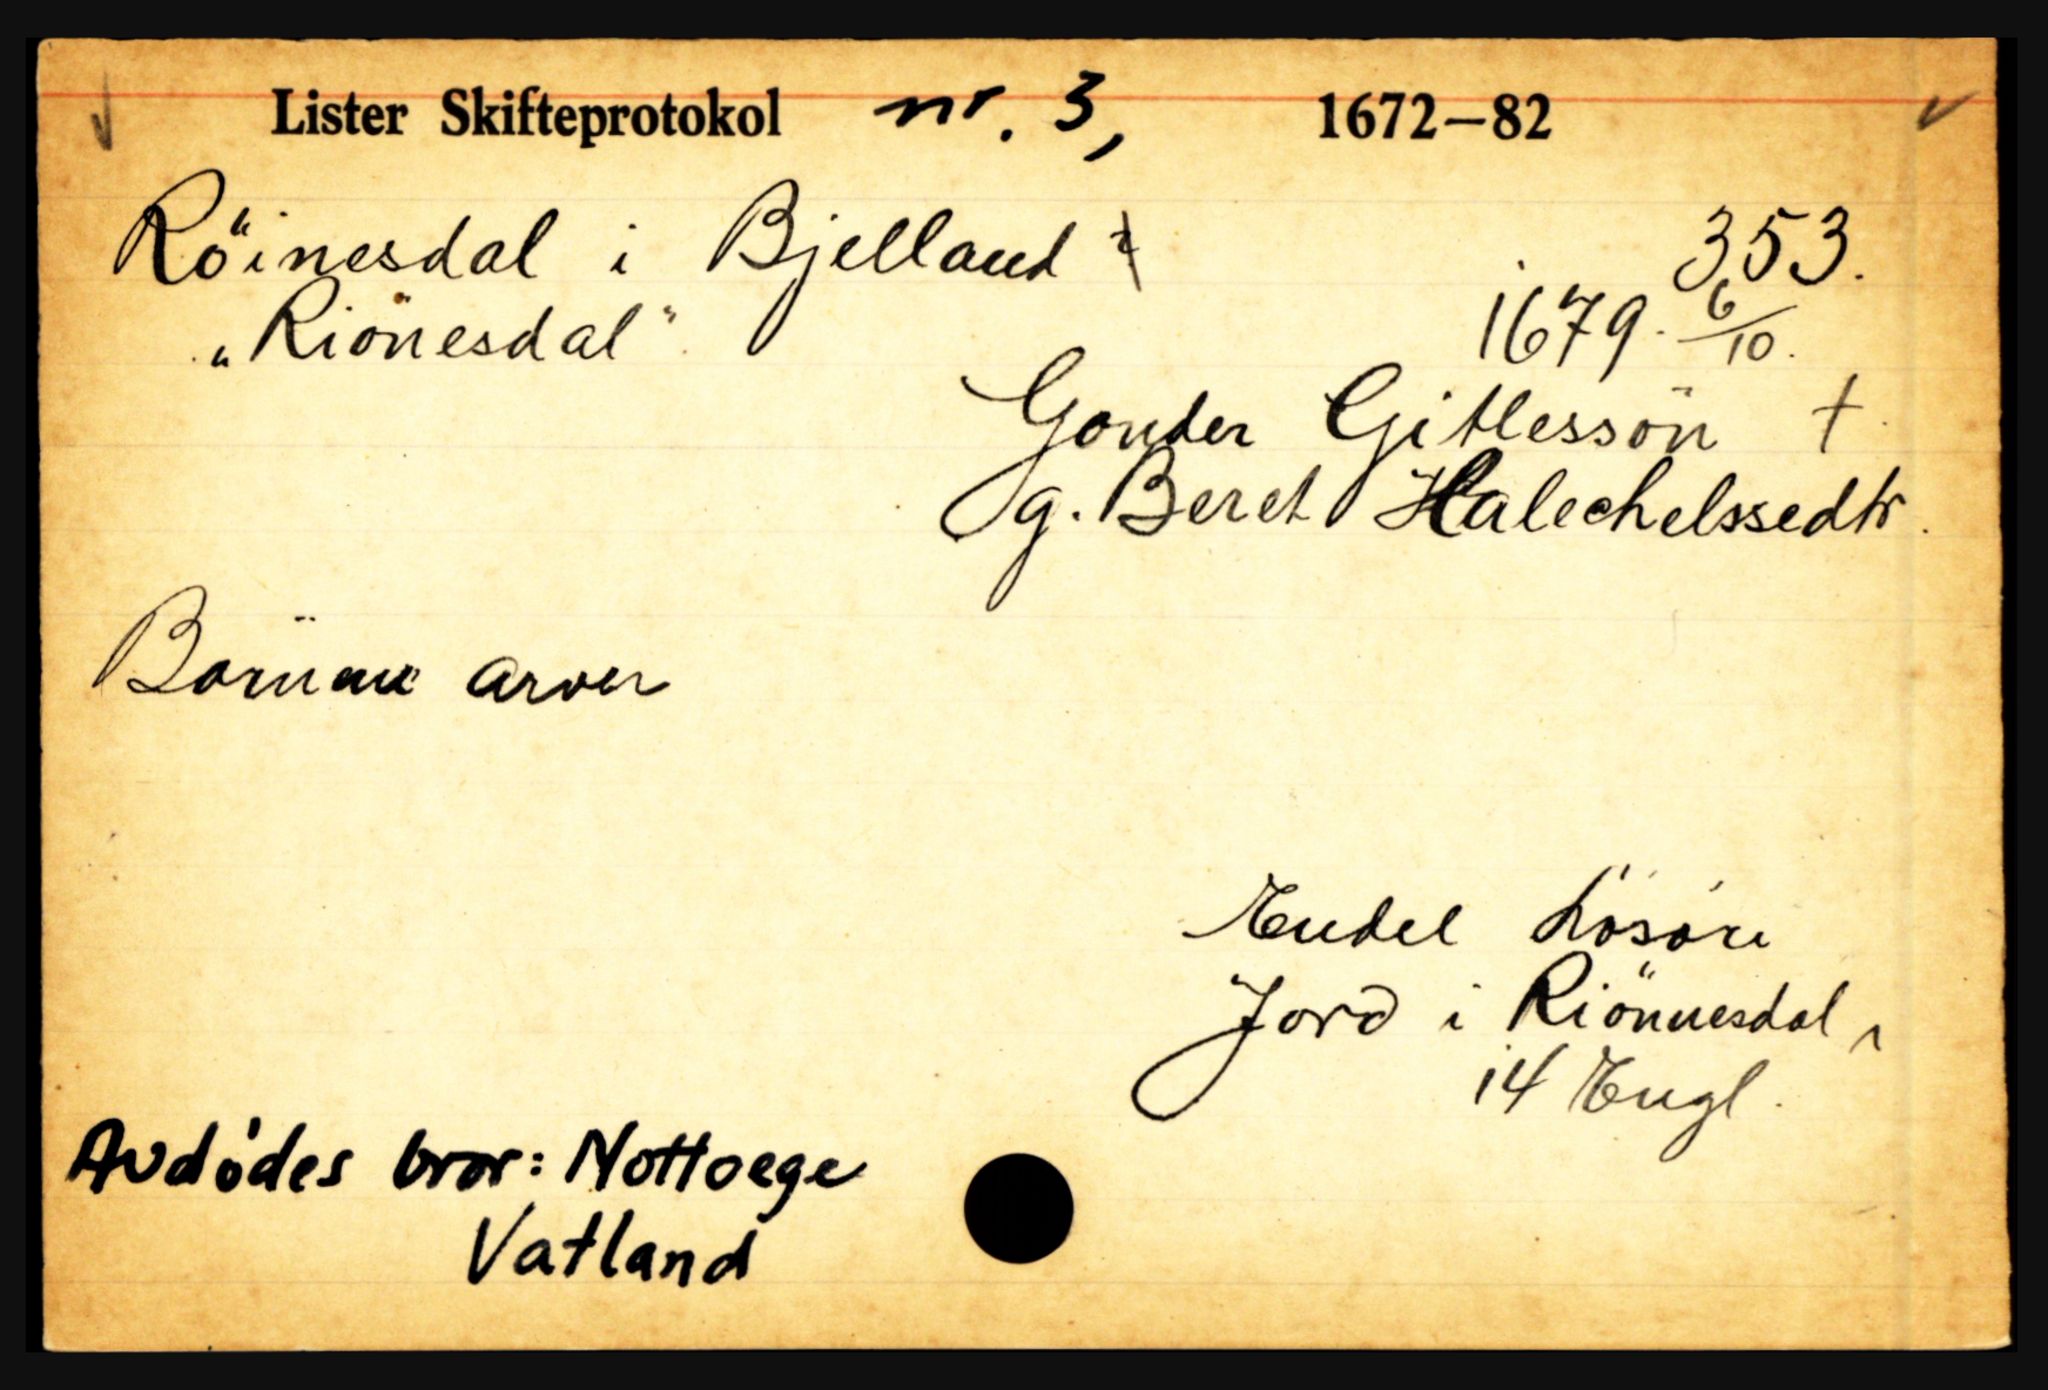 Lister Skifteprotokol nr. 3, 1672–82
Röinesdal i Bjelland 353.
„Riönesdal“ 1679. 6/10.
Gonder Gitlessön †
g. Beret Halechelssedtr.
Börnene arver
Endel Lösöre
Jord i Riönnesdal,
14 Engl.
Avdødes bror: Nottoege
Vatland